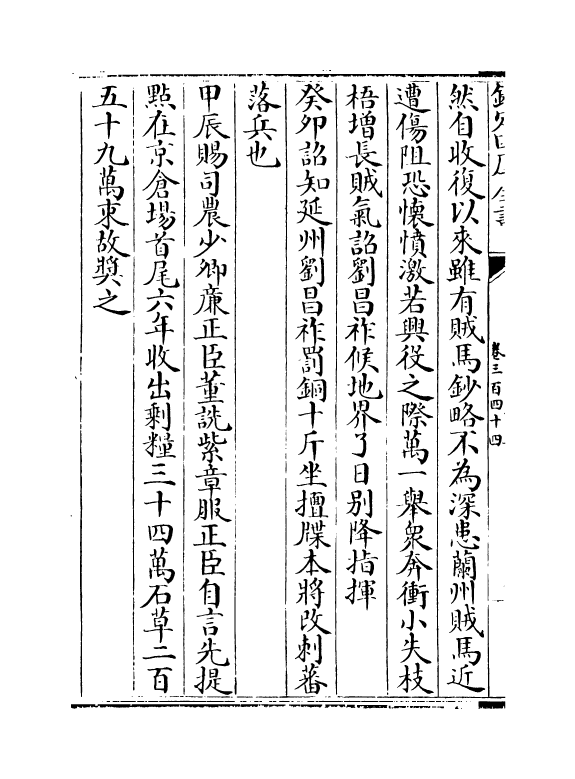 欽定四庫全書
卷三百四十四
然自收復以來雖有賊馬鈔略不為深患蘭州賊馬近
遭傷阻恐懷憤激若興役之際萬一舉衆奔衝小失枝
梧増長賊氣詔劉昌祚候地界了日别降指揮
癸卯詔知延州劉昌祚罰銅十斤坐擅牒本將改刺蕃
落兵也
甲辰賜司農少卿亷正臣董詵紫章服正臣自言先提
點在京倉場首尾六年收出剰糧三十四萬石草二百
五十九萬束故奬之